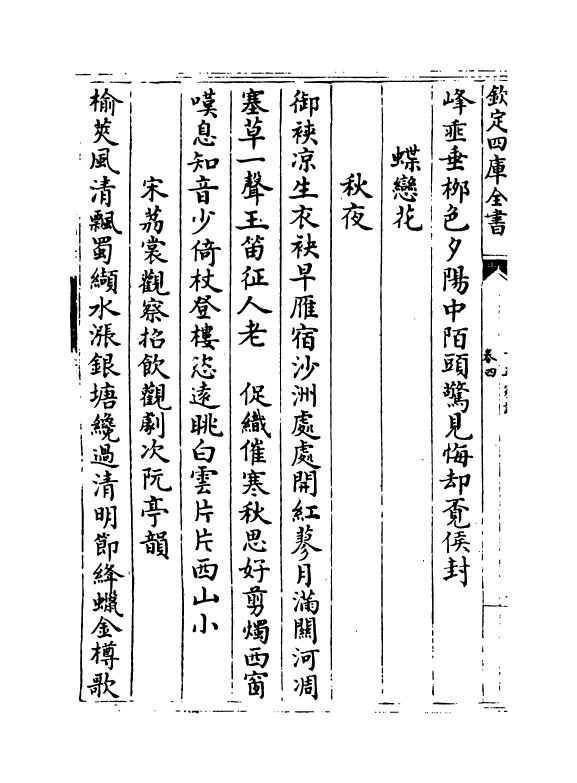 欽定四庫全書
卷四
峰重垂栁色夕陽中陌頭驚見悔却覔侯封
蝶戀花
秋夜
御裌凉生衣袂早雁宿沙洲處處開紅蓼月滿關河凋
塞草一聲玉笛征人老　促織催寒秋思好剪燭西窗
嘆息知音少倚杖登樓恣遠眺白雲片片西山小
宋荔裳觀察招飲觀劇次阮亭韻
榆莢風清飄蜀纈水漲銀塘纔過清明節絳蠟金樽歌